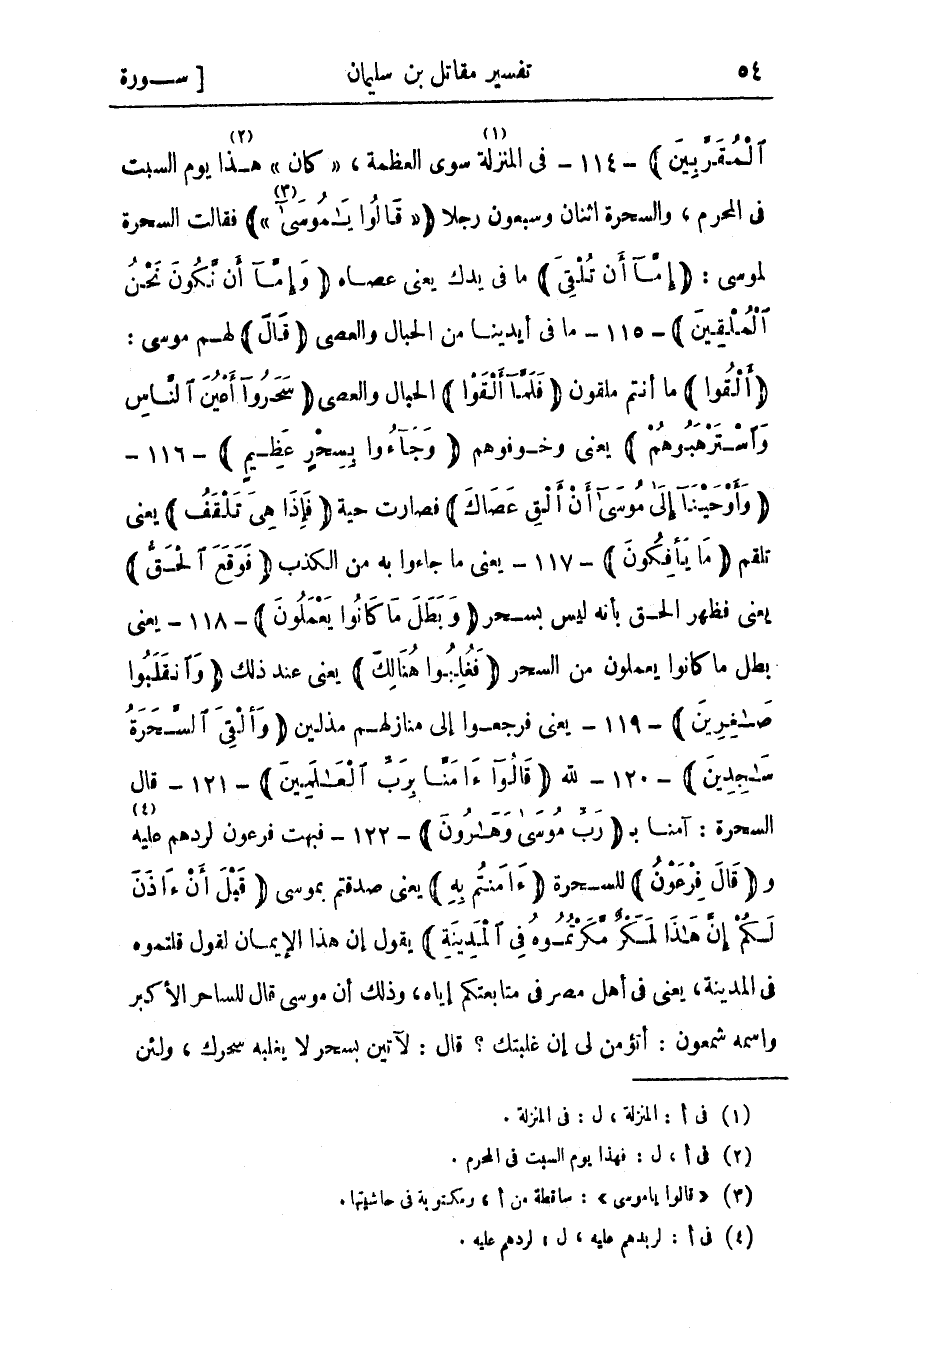 ٥٤ تفسير مقاتل بن سليمان [ ســورة
ٱلْمُقَرَّبِينَ ﴾ – ١١٤ – فى المنزلة (١) سوى العظمة ، « كان » هـذا (٢) يوم السبت
فى المحرم ، والسحرة اثنان وسبعون رجلا ﴿ « قَالُوا يَـٰمُوسَىٰٓ » (٣) ﴾ فقالت السحرة
لموسى : ﴿ إِمَّآ أَن تُلْقِىَ ﴾ ما فى يدك يعنى عصـاه ﴿ وَإِمَّـآ أَن نَّكُونَ نَحْنُ
ٱلْمُلْقِينَ ﴾ – ١١٥ – ما فى أيدينـا من الحبال والعصى ﴿ قَالَ ﴾ لهـم موسى :
﴿ أَلْقُوا ﴾ ما أنتم ملقون ﴿ فَلَمَّآ أَلْقَوْا ﴾ الحبال والعصى ﴿ سَحَرُوٓا أَعْيُنَ ٱلنَّاسِ
وَٱسْـتَرْهَبُوهُمْ ﴾ يعنى وخـوفوهم ﴿ وَجَآءُوا بِسِحْرٍ عَظِـيمٍ ﴾ – ١١٦ –
﴿ وَأَوْحَيْنَـآ إِلَىٰ مُوسَىٰٓ أَنْ أَلْقِ عَصَاكَ ﴾ فصارت حية ﴿ فَإِذَا هِىَ تَلْقَفُ ﴾ يعنى
تلقم ﴿ مَا يَأْفِكُونَ ﴾ – ١١٧ – يعنى ما جاءوا به من الكذب ﴿ فَوَقَعَ ٱلْحَـقُّ ﴾
يعنى فظهر الحـق بأنه ليس بسـحر ﴿ وَبَطَلَ مَا كَانُوا يَعْمَلُونَ ﴾ – ١١٨ – يعنى
بطل ما كانوا يعملون من السحر ﴿ فَغُلِبُـوا هُنَالِكَ ﴾ يعنى عند ذلك ﴿ وَٱنقَلَبُوا
صَـٰغِرِينَ ﴾ – ١١٩ – يعنى فرجعـوا إلى منازلهـم مذلين ﴿ وَأُلْقِىَ ٱلسَّـحَرَةُ
سَـٰجِدِينَ ﴾ – ١٢٠ – لله ﴿ قَالُوٓا ءَامَنَّـا بِرَبِّ ٱلْعَـٰلَمِـينَ ﴾ – ١٢١ – قال
السحرة : آمنـا بـ ﴿ رَبِّ مُوسَىٰ وَهَـٰرُونَ ﴾ – ١٢٢ – فبهت فرعون لردهم عليه (٤)
و ﴿ قَالَ فِرْعَوْنُ ﴾ للسـحرة ﴿ ءَامَنتُم بِهِ ﴾ يعنى صدقتم بموسى ﴿ قَبْلَ أَنْ ءَاذَنَ
لَـكُمْ إِنَّ هَـٰذَا لَمَـكْرٌ مَّكَرْتُمُـوهُ فِى ٱلْمَدِينَةِ ﴾ يقول إن هذا الإيمـان لقول قلتموه
فى المدينة ، يعنى فى أهل مصر فى متابعتكم إياه ، وذلك أن موسى قال للساحر الأكبر
واسمه شمعون : أتؤمن لى إن غلبتك ؟ قال : لآتين بسحر لا يغلبه سحرك ، ولئن
(١) فى أ : المنزلة ، ل : فى المنزلة .
(٢) فى أ ، ل : فهذا يوم السبت فى المحرم .
(٣) « قالوا ياموسى » : ساقطة من أ ، ومكتوبة فى حاشيتها .
(٤) فى أ : لربدهم عليه ، ل : لردهم عليه .